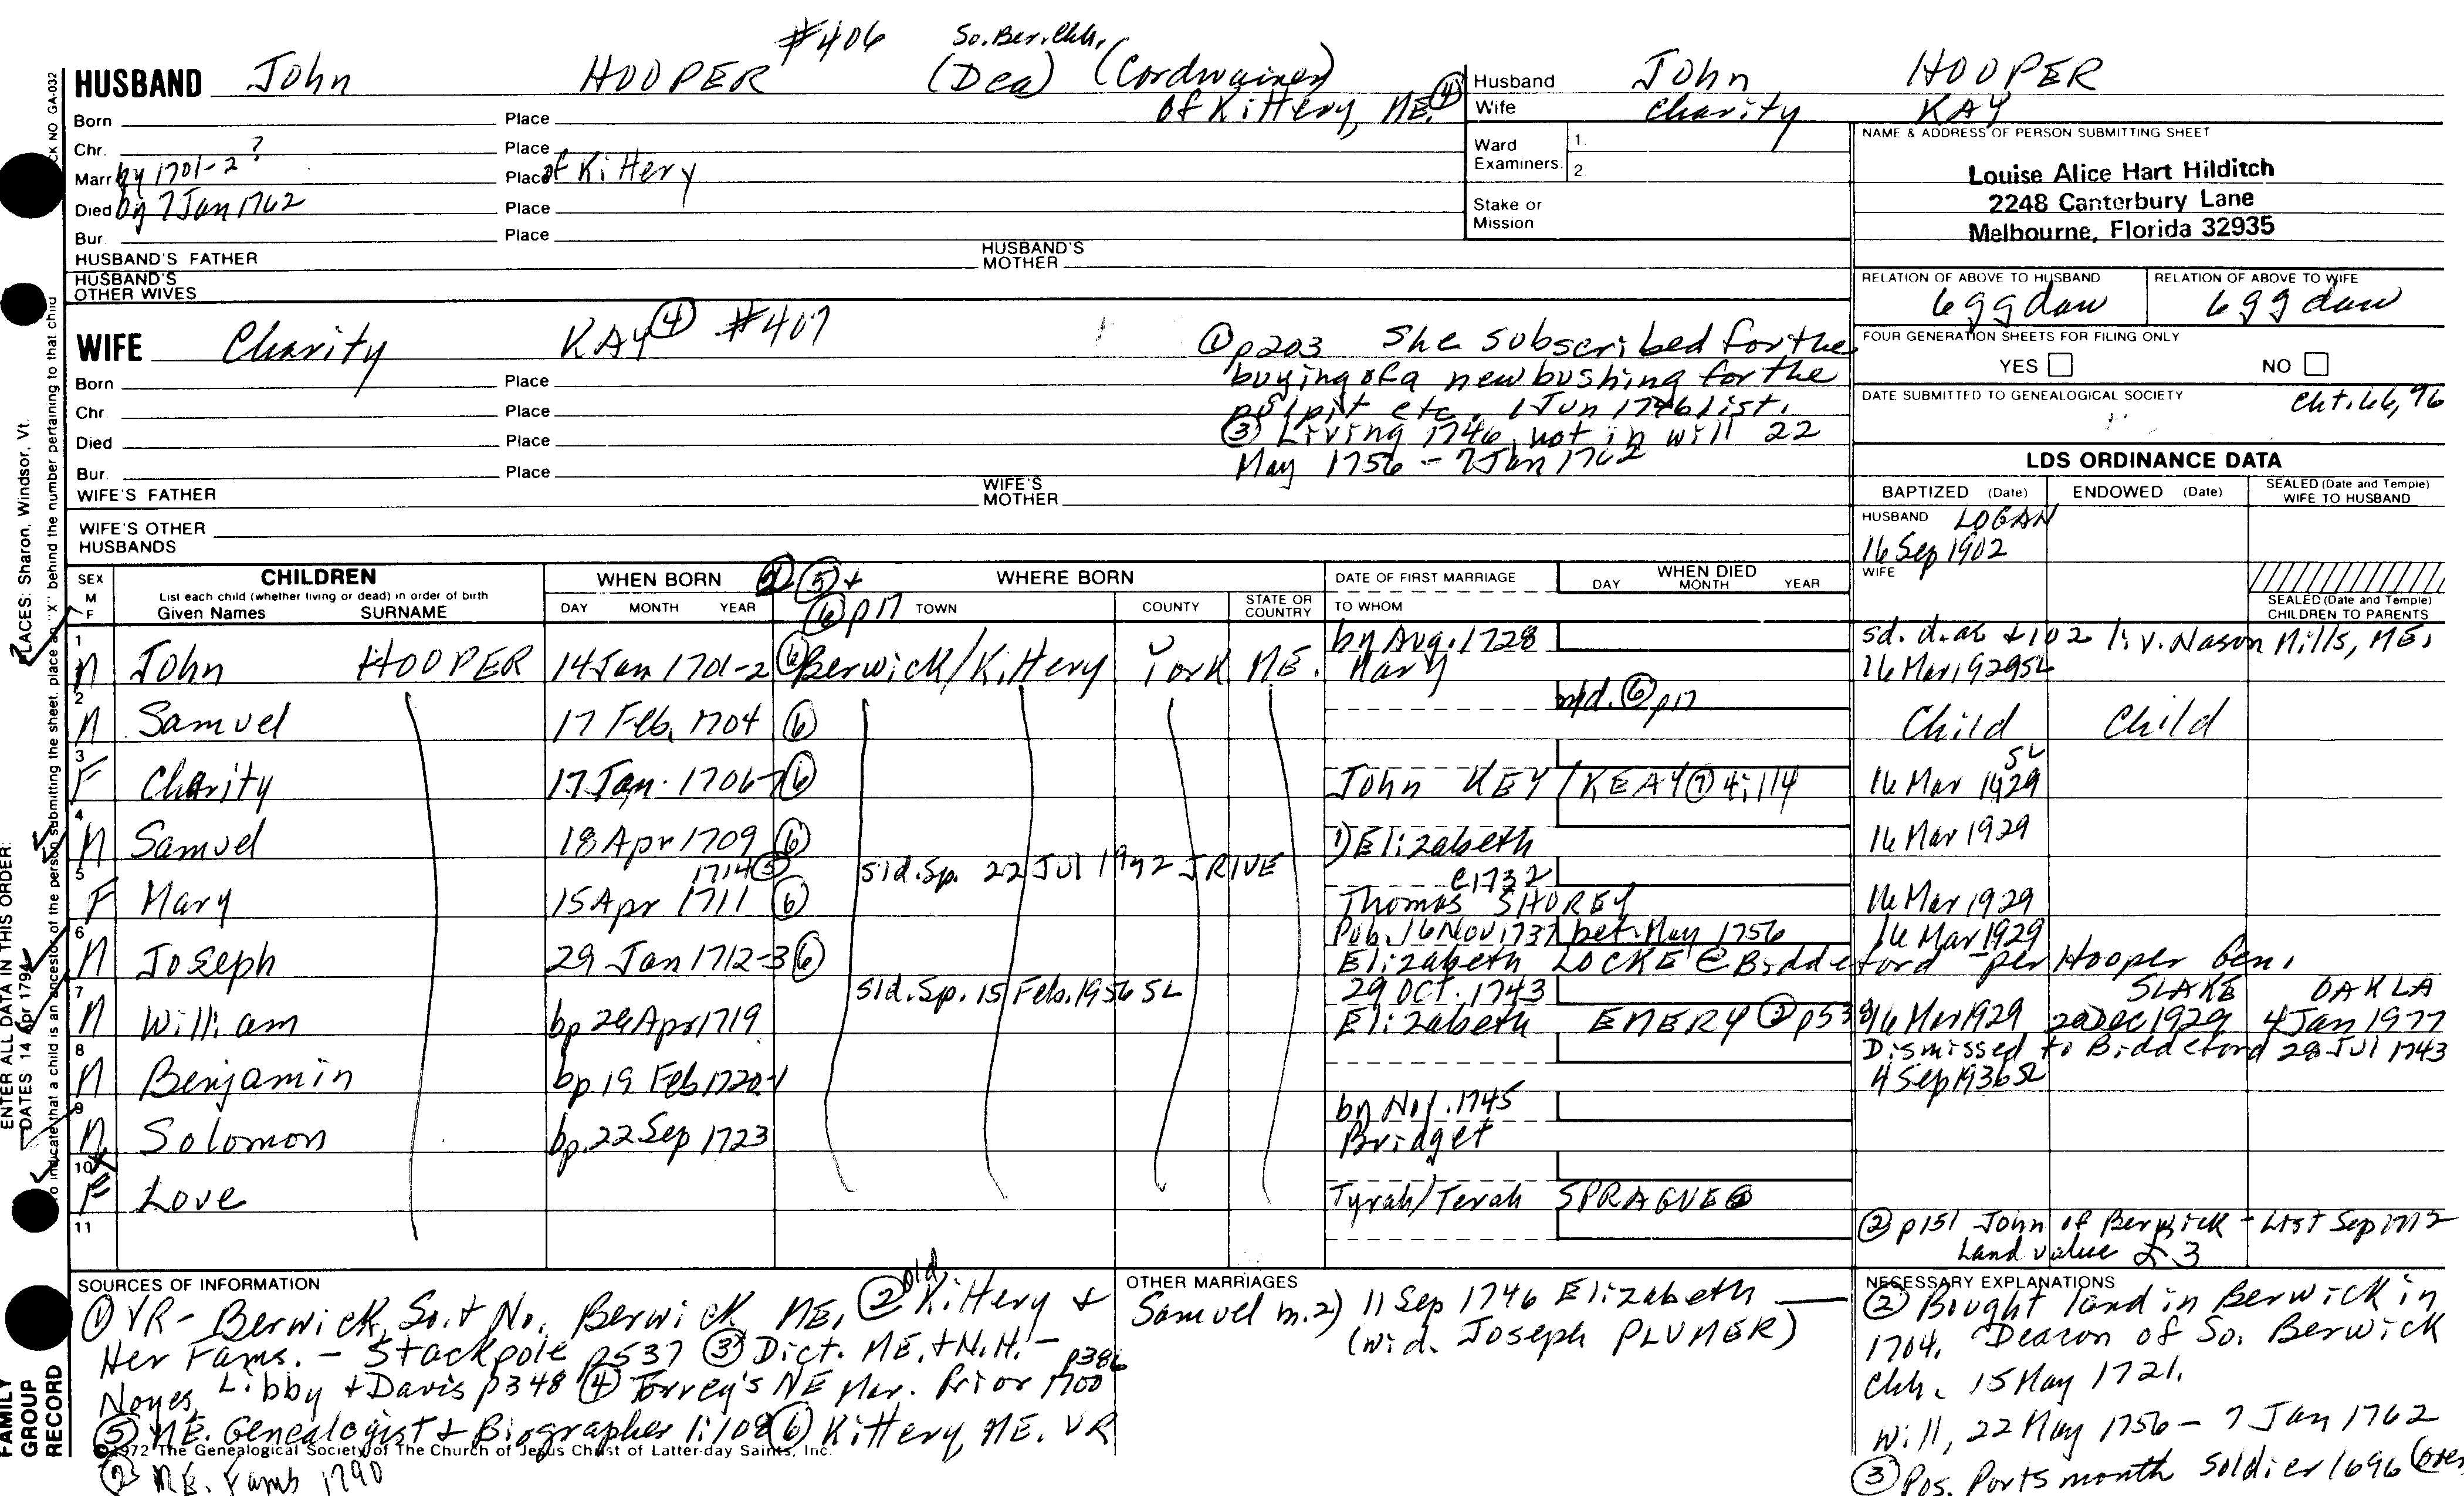 #406 So. Ber. Chh.
HUSBAND John HOOPER (Dea) (Cordwainer)
of Kittery, ME. ④
Born Place
Chr. Place
Marr. by 1701-2? Place of Kittery
Died by 7 Jan 1762 Place
Bur. Place
HUSBAND'S FATHER HUSBAND'S MOTHER
HUSBAND'S OTHER WIVES
Husband John HOOPER
Wife Charity KAY
Ward Examiners: 1.
2.
Stake or Mission
NAME & ADDRESS OF PERSON SUBMITTING SHEET
Louise Alice Hart Hilditch
2248 Canterbury Lane
Melbourne, Florida 32935
RELATION OF ABOVE TO HUSBAND RELATION OF ABOVE TO WIFE
6ggdau 6ggdau
FOUR GENERATION SHEETS FOR FILING ONLY
YES NO
DATE SUBMITTED TO GENEALOGICAL SOCIETY
Cht. 66, 96
WIFE Charity KAY ④ #407
① p203 She subscribed for the
buying of a new bushing for the
pulpit etc., 1 Jun 1746 list.
③ Living 1746, not in will 22
May 1756 - 7 Jan 1762
Born Place
Chr. Place
Died Place
Bur. Place
WIFE'S FATHER WIFE'S MOTHER
WIFE'S OTHER HUSBANDS
LDS ORDINANCE DATA
BAPTIZED (Date) ENDOWED (Date) SEALED (Date and Temple) WIFE TO HUSBAND
HUSBAND LOGAN
16 Sep 1902
WIFE
SEALED (Date and Temple) CHILDREN TO PARENTS
SEX M F
CHILDREN
List each child (whether living or dead) in order of birth
Given Names SURNAME
WHEN BORN
DAY MONTH YEAR
⑤ +
⑥ p17
WHERE BORN
TOWN COUNTY STATE OR COUNTRY
DATE OF FIRST MARRIAGE
TO WHOM
WHEN DIED
DAY MONTH YEAR
by Aug. 1728 sd. d. at 102 liv. Nason Mills, ME.
1 M John HOOPER 14 Jan 1701-2 ⑥ Berwick/Kittery York ME. Mary 16 Mar 1929 SL
⑥ p17
2 M Samuel 17 Feb. 1704 ⑥ Child Child
SL
3 F Charity 17 Jan. 1706-7 ⑥ John KEY/KEAY ⑦ 4:114 16 Mar 1929
4 M Samuel 18 Apr 1709 ⑥ 1) Elizabeth 16 Mar 1929
1714 ③ sld. Sp. 22 Jul 1992 JRIVE c1732
5 F Mary 15 Apr 1711 ⑥ Thomas SHOREY 16 Mar 1929
Pub. 16 Nov 1737 bet. May 1756 16 Mar 1929
6 M Joseph 29 Jan 1712-3 ⑥ Elizabeth LOCKE @ Biddeford - per Hooper Gen.
sld. Sp. 15 Feb. 1956 SL 29 OCT. 1743 SLAKE OAKLA
7 M William bp 26 Apr 1719 Elizabeth EMERY ② p538 16 Mar 1929 20 Dec 1929 4 Jan 1977
Dismissed to Biddeford 28 Jul 1743
8 M Benjamin bp 19 Feb 1720-1 4 Sep 1936 SL
by Nov. 1745
9 M Solomon bp. 22 Sep 1723 Bridget
10 X F Love Tyrah/Terah SPRAGUE
11
② p151 John of Berwick - List Sep 1772
Land value £3
SOURCES OF INFORMATION
① VR - Berwick, So. + No. Berwick, ME. ② Old Kittery +
Her Fams. - Stackpole p537 ③ Dict. ME. + N.H. -
Noyes, Libby + Davis p348 ④ Torrey's NE Mar. Prior 1700 p386
⑤ ME. Genealogist + Biographer 1:108 ⑥ Kittery, ME. VR
©1972 The Genealogical Society of The Church of Jesus Christ of Latter-day Saints, Inc.
⑦ ME. Fams 1790
OTHER MARRIAGES
Samuel m. 2) 11 Sep 1746 Elizabeth
(wid. Joseph PLUMER)
NECESSARY EXPLANATIONS
② Bought land in Berwick in
1704. Deacon of So. Berwick
Chh. 15 May 1721.
Will, 22 May 1756 - 7 Jan 1762
③ Pos. Portsmouth soldier 1696 (over
FAMILY GROUP RECORD
ENTER ALL DATA IN THIS ORDER:
DATES 14 Apr 1794
PLACES: Sharon, Windsor, Vt.
To indicate that a child is an ancestor of the person submitting the sheet, place an "X" behind the number pertaining to that child
CK NO GA-032